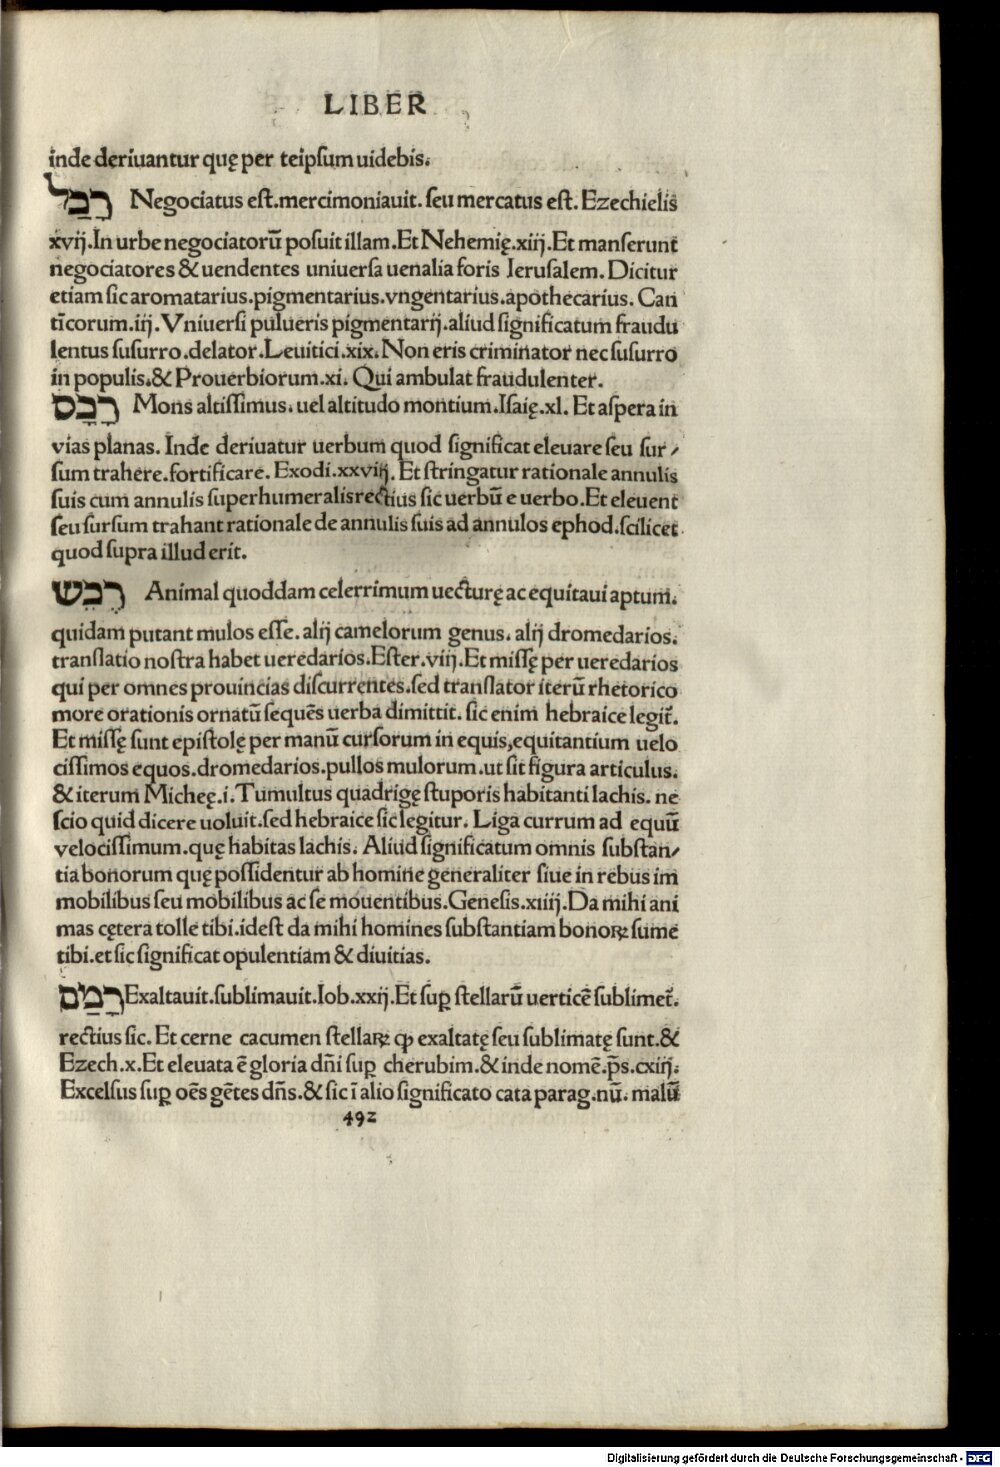 LIBER
inde deriuantur quę per teipsum uidebis.
רָכַל Negociatus est.mercimoniauit. seu mercatus est. Ezechielis
xvij.In urbe negociatorū posuit illam.Et Nehemię.xiij.Et manserunt
negociatores & uendentes uniuersa uenalia foris Ierusalem. Dicitur
etiam sic aromatarius.pigmentarius.vngentarius.apothecarius. Can
ticorum.iij. Vniuersi pulueris pigmentarij.aliud significatum fraudu
lentus susurro.delator.Leuitici.xix. Non eris criminator nec susurro
in populis.& Prouerbiorum.xi. Qui ambulat fraudulenter.
רָכָס Mons altissimus. uel altitudo montium.Isaię.xl. Et aspera in
vias planas. Inde deriuatur uerbum quod significat eleuare seu sur⸗
sum trahere.fortificare. Exodi.xxviij. Et stringatur rationale annulis
suis cum annulis superhumeralis rectius sic uerbū e uerbo.Et eleuent
seu sursum trahant rationale de annulis suis ad annulos ephod.scilicet
quod supra illud erit.
רֶכֶש Animal quoddam celerrimum uecturę ac equitaui aptum.
quidam putant mulos esse. alij camelorum genus. alij dromedarios.
translatio nostra habet ueredarios.Ester.viij.Et missę per ueredarios
qui per omnes prouincias discurrentes.sed translator iterū rhetorico
more orationis ornatū sequēs uerba dimittit. sic enim hebraice legit̄.
Et missę sunt epistolę per manū cursorum in equis,equitantium uelo
cissimos equos.dromedarios.pullos mulorum.ut sit figura articulus.
& iterum Micheę.i. Tumultus quadrigę stuporis habitanti lachis. ne
scio quid dicere uoluit.sed hebraice sic legitur. Liga currum ad equū
velocissimum.quę habitas lachis. Aliud significatum omnis substan⸗
tia bonorum quę possidentur ab homine generaliter siue in rebus im
mobilibus seu mobilibus ac se mouentibus.Genesis.xiiij.Da mihi ani
mas cętera tolle tibi.idest da mihi homines substantiam bonoꝝ sume
tibi.et sic significat opulentiam & diuitias.
רָמַם Exaltauit.sublimauit.Iob.xxij.Et suꝑ stellarū uerticē sublimet̄.
rectius sic. Et cerne cacumen stellaꝝ ꝙ exaltatę seu sublimatę sunt.&
Ezech.x.Et eleuata ē gloria dn̄i suꝑ cherubim.& inde nomē.p̄s.cxiij.
Excelsus suꝑ oēs gētes dn̄s.& sic ī alio significato cata parag.nū. malū
492
Digitalisierung gefördert durch die Deutsche Forschungsgemeinschaft - DFG